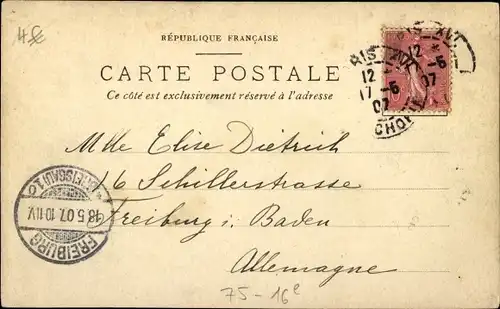 4€
RÉPUBLIQUE FRANÇAISE
CARTE POSTALE
Ce côté est exclusivement réservé à l'adresse
RIS
12
17-5
07
RIS AV.
12
17-5
07
CHOI
Mlle Elise Dietrich
16 Schillerstrasse
Freiburg i. Baden
Allemagne
FREIBURG
18.5.07.10-11V.
* (BREISGAU) 1.o
75-16e